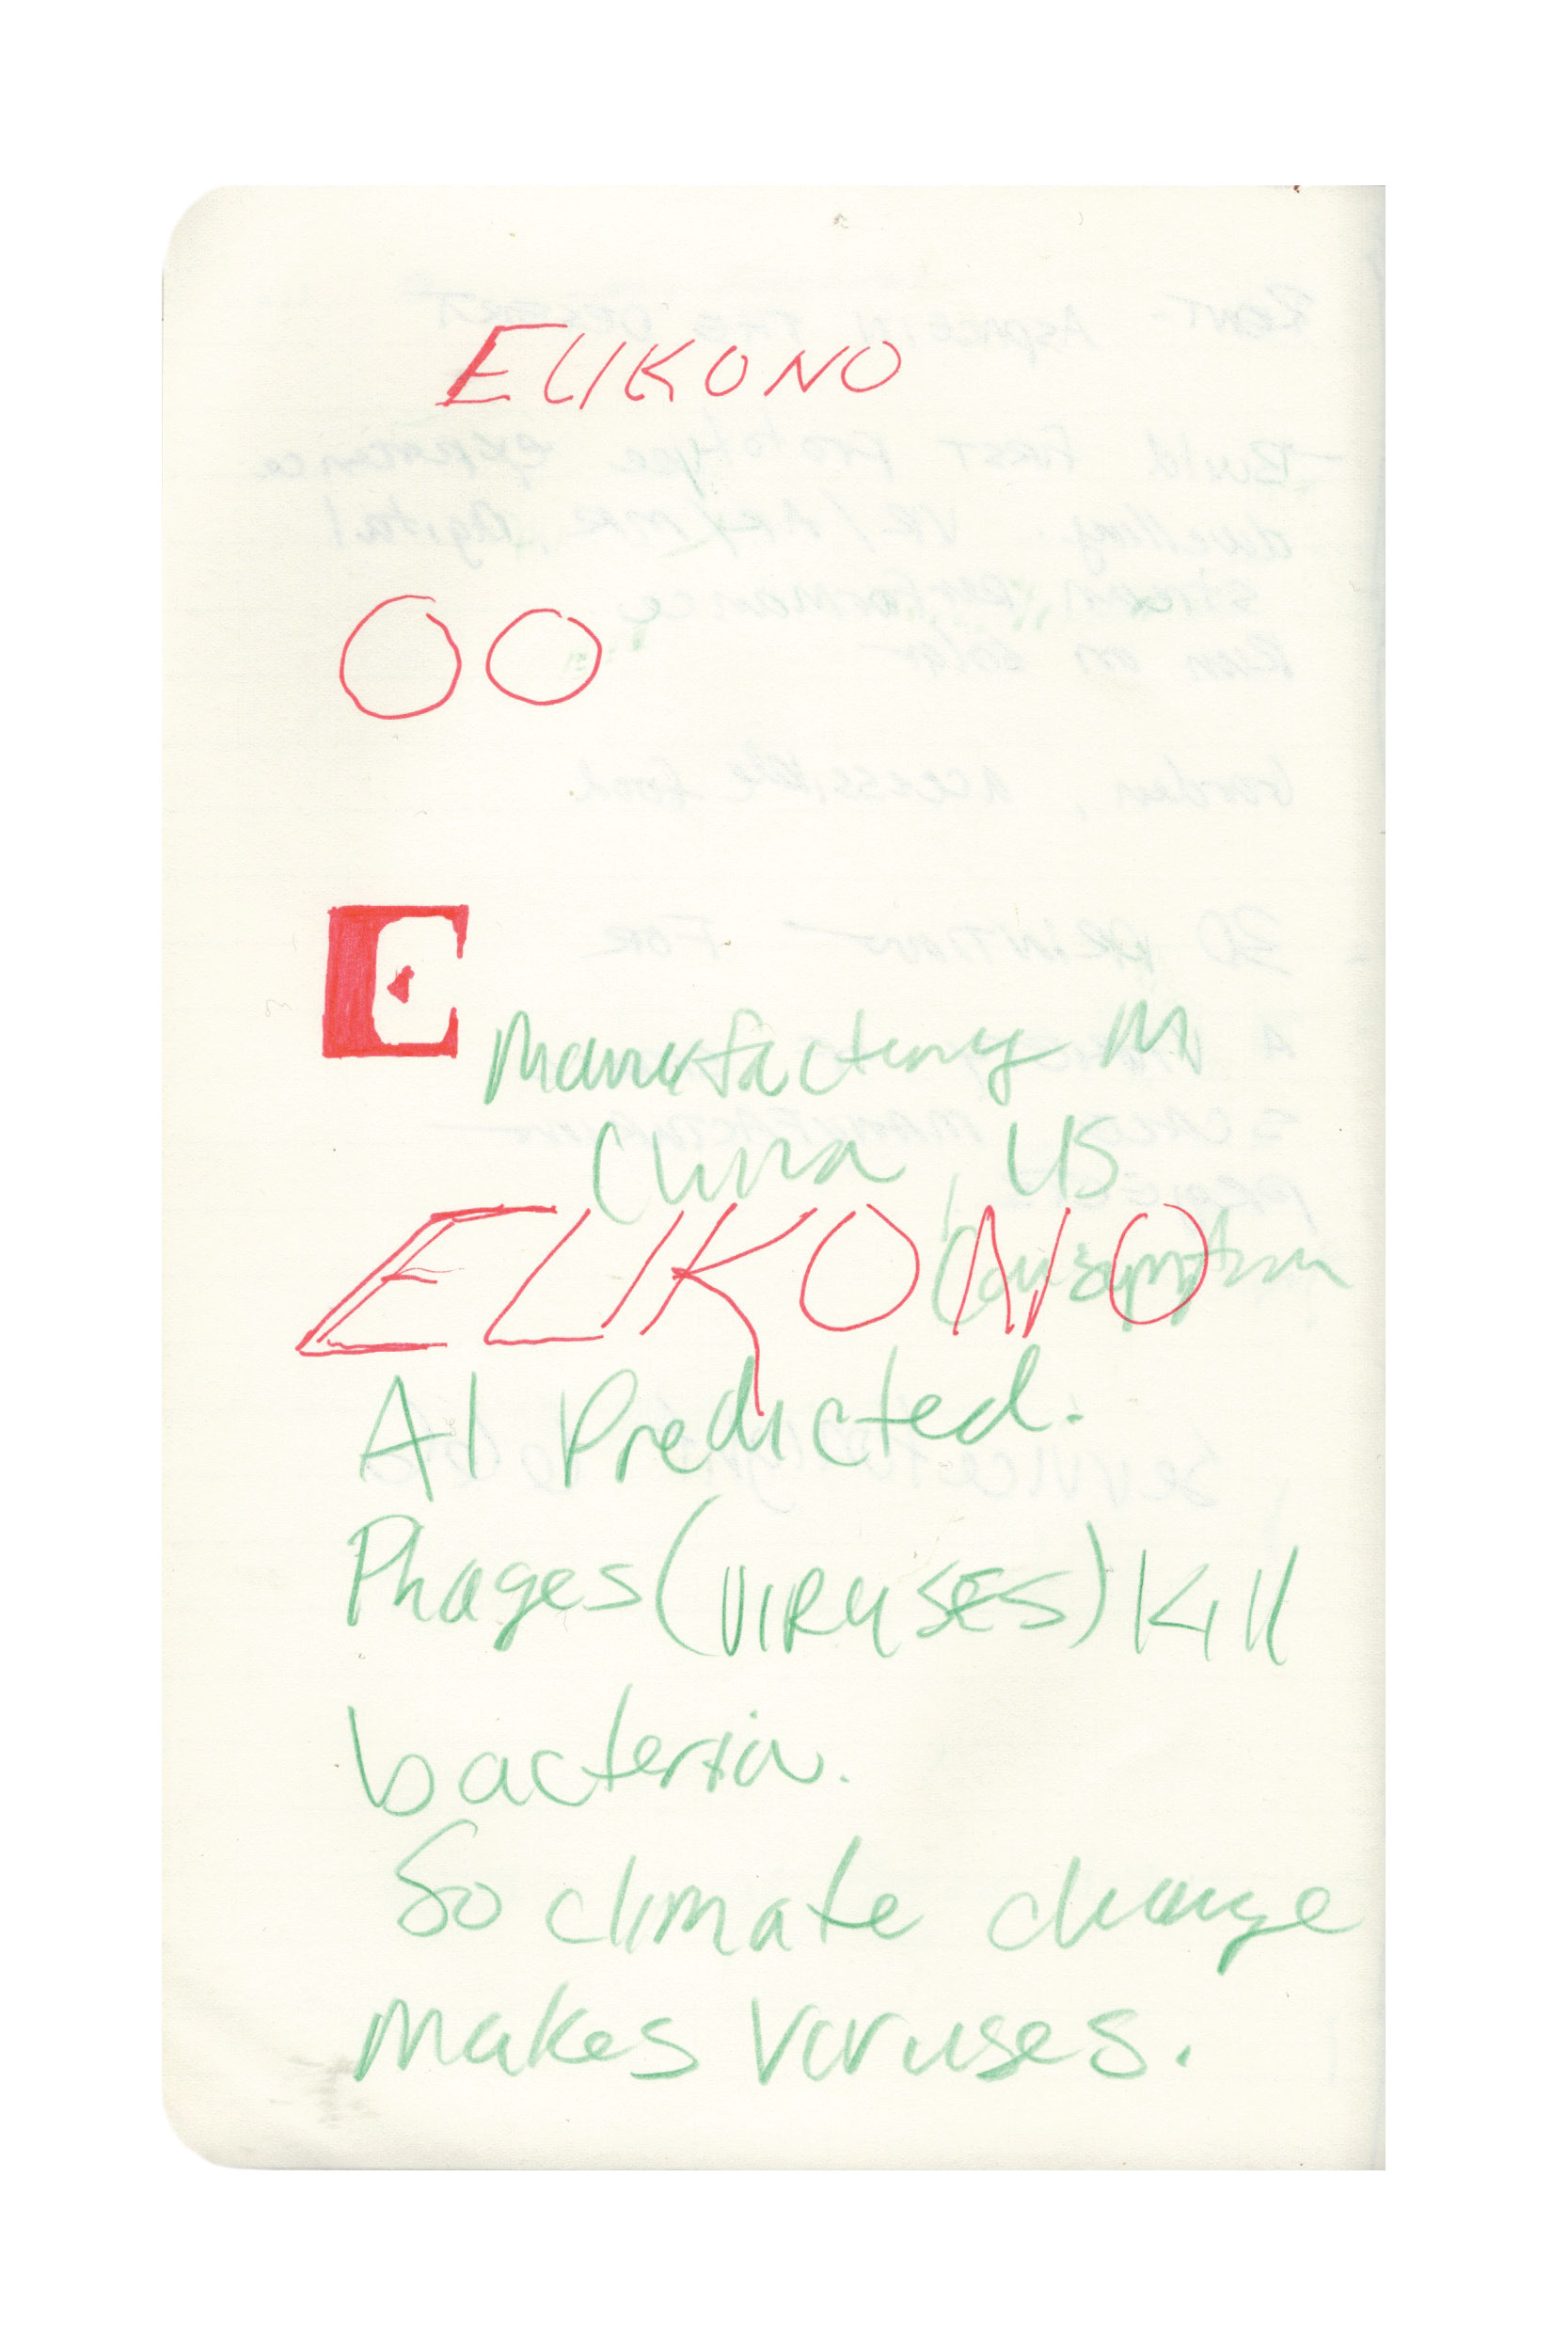 ELIKONO
E
Manufacturing in
China, US
Consumption
ELIKONO
AI Predicted.
Phages (VIRUSES) Kill
bacteria.
So climate change
makes viruses.